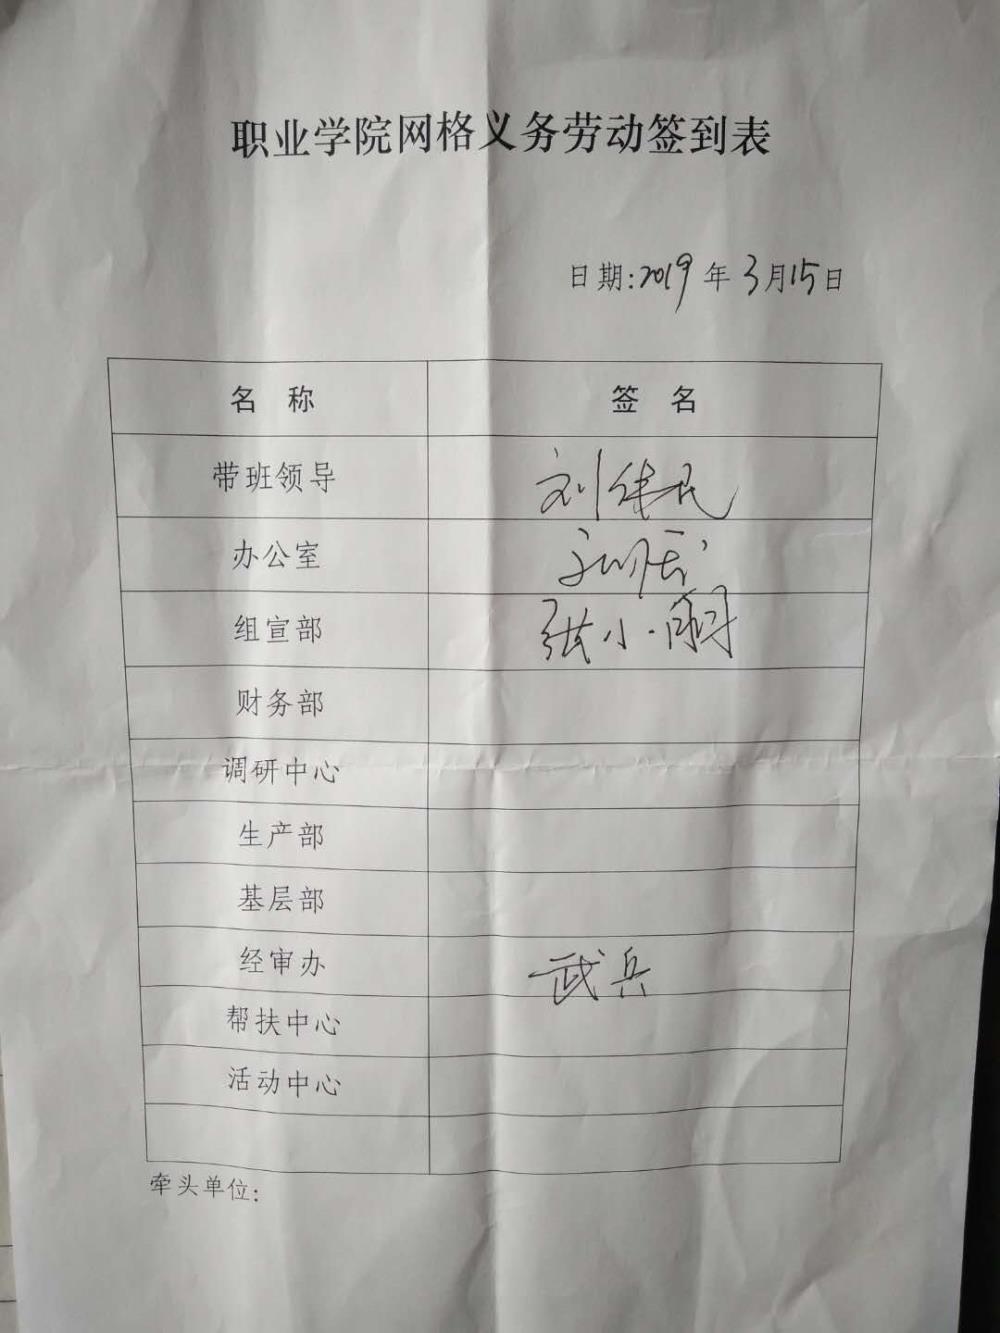 职业学院网格义务劳动签到表
日期:2019年3月15日
名 称 签 名
带班领导 刘伟民
办公室
组宣部 张小朋
财务部
调研中心
生产部
基层部
经审办 武兵
帮扶中心
活动中心
牵头单位: